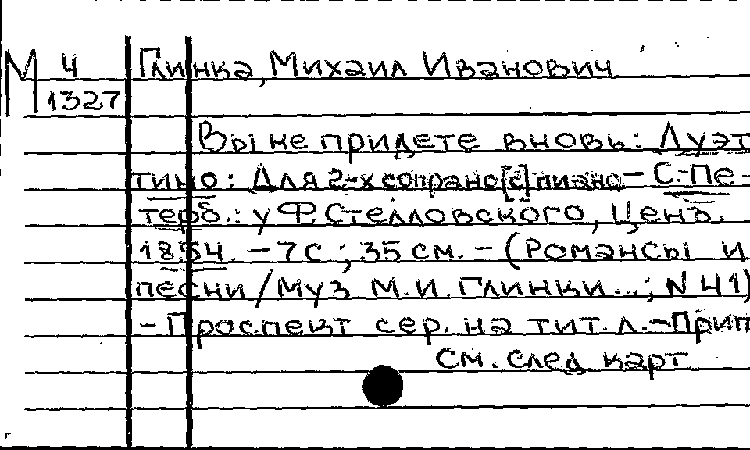 М 4 Глинка, Михаил Иванович
1327
Вы не придете вновь: Дуэт
тино: Для 2-х сопрано [с] пиано – С.-Пе-
терб.: у Ф. Стелловского, Ценз.
1854. – 7 с.; 35 см. – (Романсы и
песни / Муз М. И. Глинки...; N 41)
– Проспект сер. на тит. л. – Прип
см. след карт